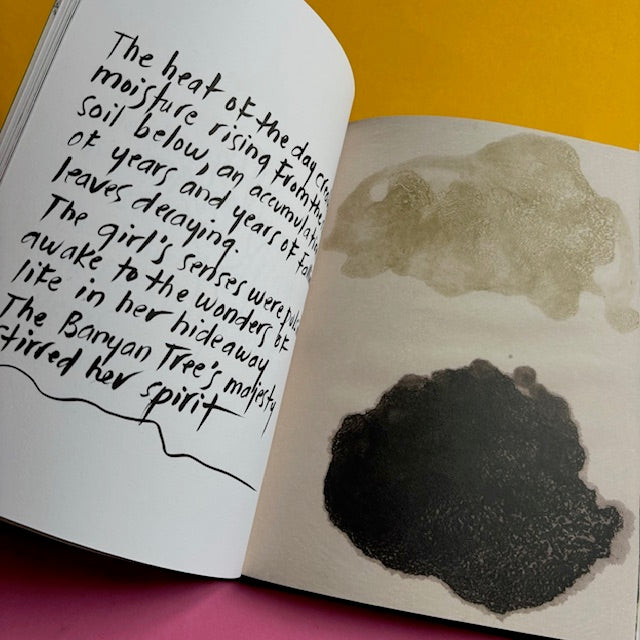 The heat of the day
moisture rising from the
soil below, an
of years and years of
leaves decaying.
The girl's senses were
awake to the wonders of
life in her hideaway
The Banyan Tree's majesty
stirred her spirit